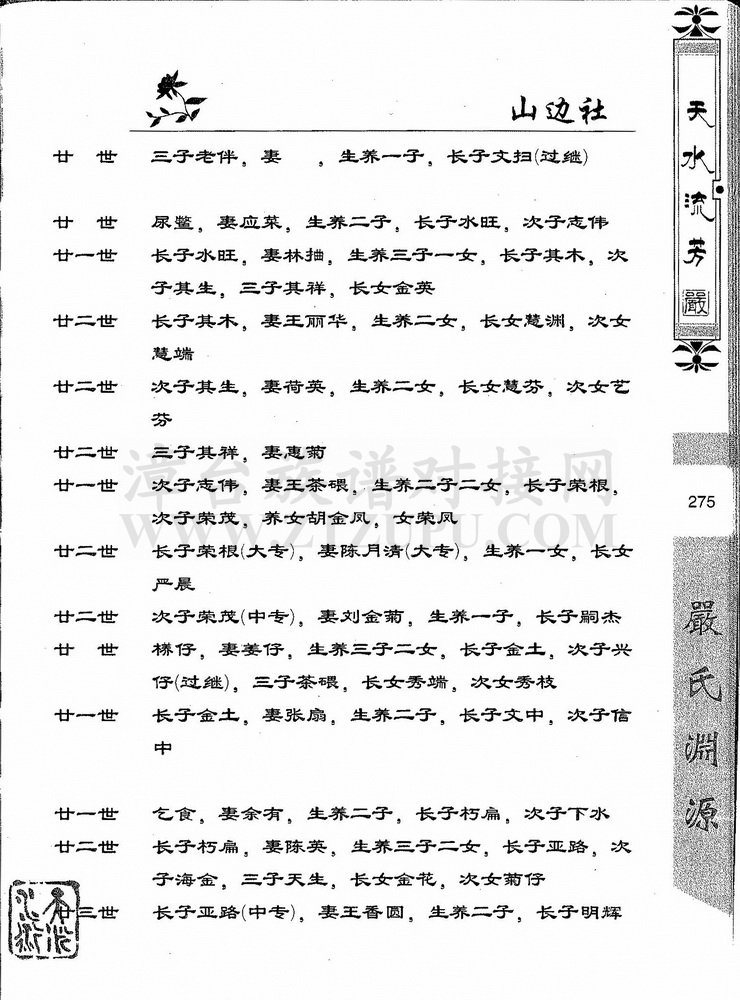 山边社
廿 世 三子老伴，妻 ，生养一子，长子文扫(过继)
廿 世 尿鳖，妻应菜，生养二子，长子水旺，次子志伟
廿一世 长子水旺，妻林抽，生养三子一女，长子其木，次
子其生，三子其祥，长女金英
廿二世 长子其木，妻王丽华，生养二女，长女慧渊，次女
慧端
廿二世 次子其生，妻荷英，生养二女，长女慧芬，次女艺
芬
廿二世 三子其祥，妻惠菊
廿一世 次子志伟，妻王茶碨，生养二子二女，长子荣根，
次子荣茂，养女胡金凤，女荣凤
廿二世 长子荣根(大专)，妻陈月清(大专)，生养一女，长女
严晨
廿二世 次子荣茂(中专)，妻刘金菊，生养一子，长子嗣杰
廿 世 仔，妻姜仔，生养三子二女，长子金土，次子兴
仔(过继)，三子茶碨，长女秀端，次女秀枝
廿一世 长子金土，妻张扇，生养二子，长子文中，次子信
中
廿一世 乞食，妻余有，生养二子，长子朽扁，次子下水
廿二世 长子朽扁，妻陈英，生养三子二女，长子亚路，次
子海金，三子天生，长女金花，次女菊仔
廿三世 长子亚路(中专)，妻王香圆，生养二子，长子明辉
天水流芳
嚴
275
嚴氏淵源
漳台族谱对接网
WWW.ZTZUPU.COM